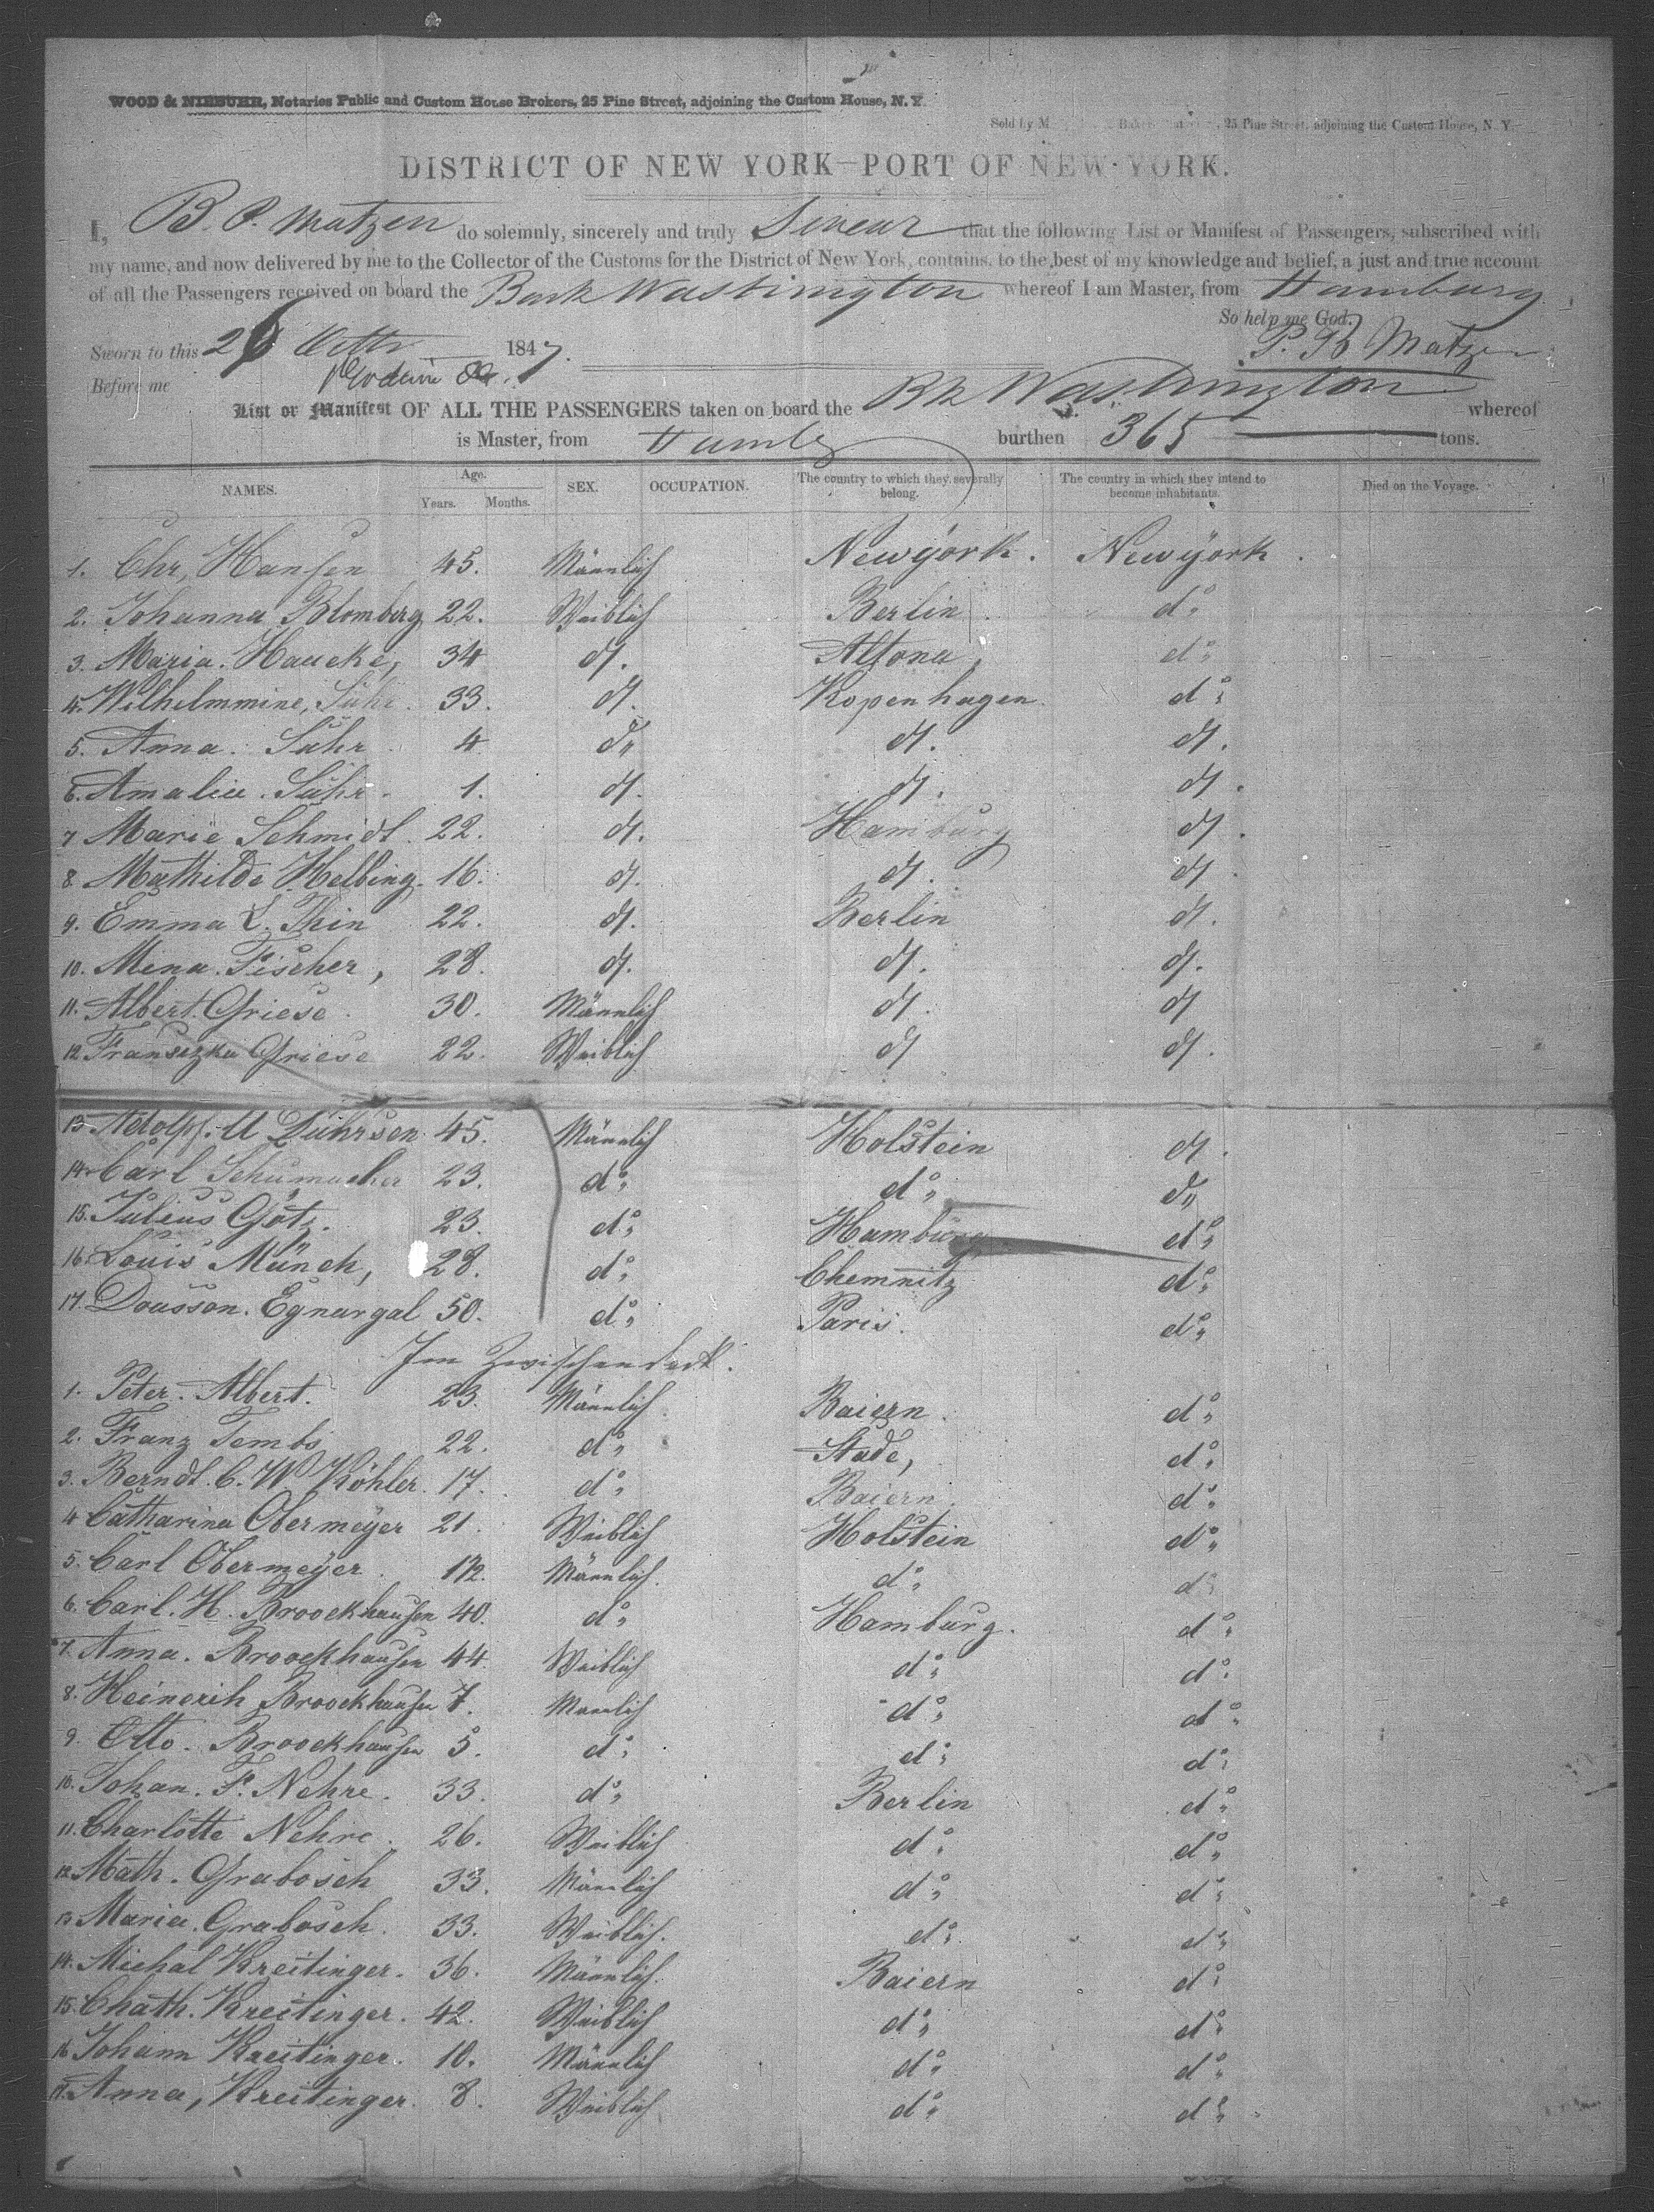 WOOD & NIEBUHR, Notaries Public and Custom House Brokers, 25 Pine Street, adjoining the Custom House, N. Y.
Sold by M Baker, 25 Pine Street, adjoining the Custom House, N. Y.
DISTRICT OF NEW YORK—PORT OF NEW YORK.
I, B. P. Matzen do solemnly, sincerely and truly Swear that the following List or Manifest of Passengers, subscribed with
my name, and now delivered by me to the Collector of the Customs for the District of New York, contains, to the best of my knowledge and belief, a just and true account
of all the Passengers received on board the Bark Washington whereof I am Master, from Hamburg
So help me God.
Sworn to this 26 Octbr 1847. Matzen
Before me
List or Manifest OF ALL THE PASSENGERS taken on board the Bk Washington whereof
is Master, from Hambg burthen 365 tons.
NAMES. Age. Years. Months. SEX. OCCUPATION. The country to which they severally belong. The country in which they intend to become inhabitants. Died on the Voyage.
1. Chr, Hansen 45. Männlich Newyork. Newyork.
2. Johanna Blomberg 22. Weiblich Berlin. do
3. Maria. Haucke, 34 do. Altona, do
4. Wilhelmmine, Sühr. 33. do. Kopenhagen. do
5. Anna. Sühr 4 do do. do.
6. Amalie. Sühr. 1. do. do. do.
7 Marie Schmidt. 22. do. Hamburg do.
8 Mathilde Helbing. 16. do. do. do.
9. Emma L. Thin 22. do. Berlin do.
10. Mina. Fischer, 28. do. do. do.
11. Albert. Griese. 30. Männlich do. do
12. Fransezka Griese 22. Weiblich do do.
13 Adolph. U Dührsen. 45. Männlich Holstein do.
14. Carl Schumacher 23. do do do
15. Julius Götz. 23. do Hamburg do
16. Louis Münch, 28. do Chemnitz do
17. Dousson. Egnurgal 50. do Paris. do
Im Zwischendeck.
1. Peter. Albert. 23. Männlich. Baiern. do
2. Franz Tembs 22. do Stade, do
3. Berndt. C. W Köhler. 17. do Baiern. do
4 Catharina Obermeyer 21. Weiblich Holstein do
5. Carl Obermeyer. 1½. Männlich. do do
6. Carl. H. Broockhausen 40. do Hamburg. do
7. Anna. Broockhausen 44. Weiblich do do
8. Heinerih Broockhausen 7. Männlich do do
9. Otto. Broockhausen 5. do do do
10. Johan. F. Nehre. 33. do Berlin do
11. Charlotte Nehre. 26. Weiblich do do
12. Math. Grabosch 33. Männlich do do
13 Maria. Grabosch. 33. Weiblich. do do
14. Michal Kreitinger. 36. Männlich. Baiern do
15. Chath. Kreitinger. 42. Weiblich do do
16 Johann Kreitinger. 10. Männlich do do
17. Anna, Kreitinger. 8. Weiblich do do